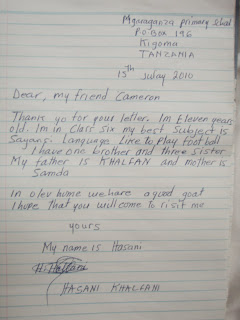 Mgaraganza primary school
P.O BOX 196
Kigoma
TANZANIA
15th Julay 2010
Dear, my friend Cameron
Thanks yo for your letter. Im Eleven years
old. Im in Class six my best Subject is
Sayansi Language. Like to Play Football
I have one brother and three Sister
My father is KHALFAN and mother is
Samda
in olev hume we have a good goat
I hope that you will come to risit me
yours
My name is Hasani
HASANI KHALFANI